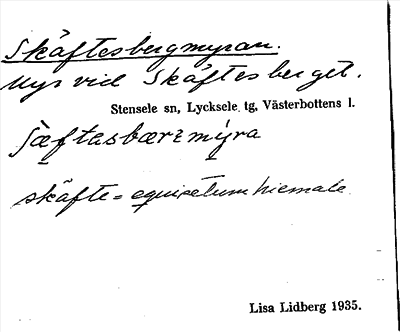 Skäftesbergmyran.
Myr vid Skäftesberget.
Stensele sn, Lycksele tg, Västerbottens l.
ʃæftasbærɛmýra
skäfte = equisetum hiemale.
Lisa Lidberg 1935.